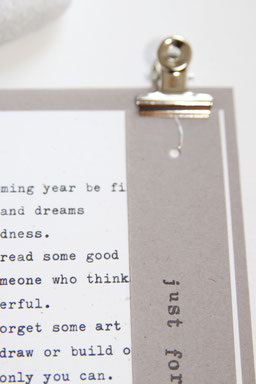 ming year be fi
and dreams
dness.
read some good
meone who think
erful.
orget some art
draw or build o
only you can.
just for